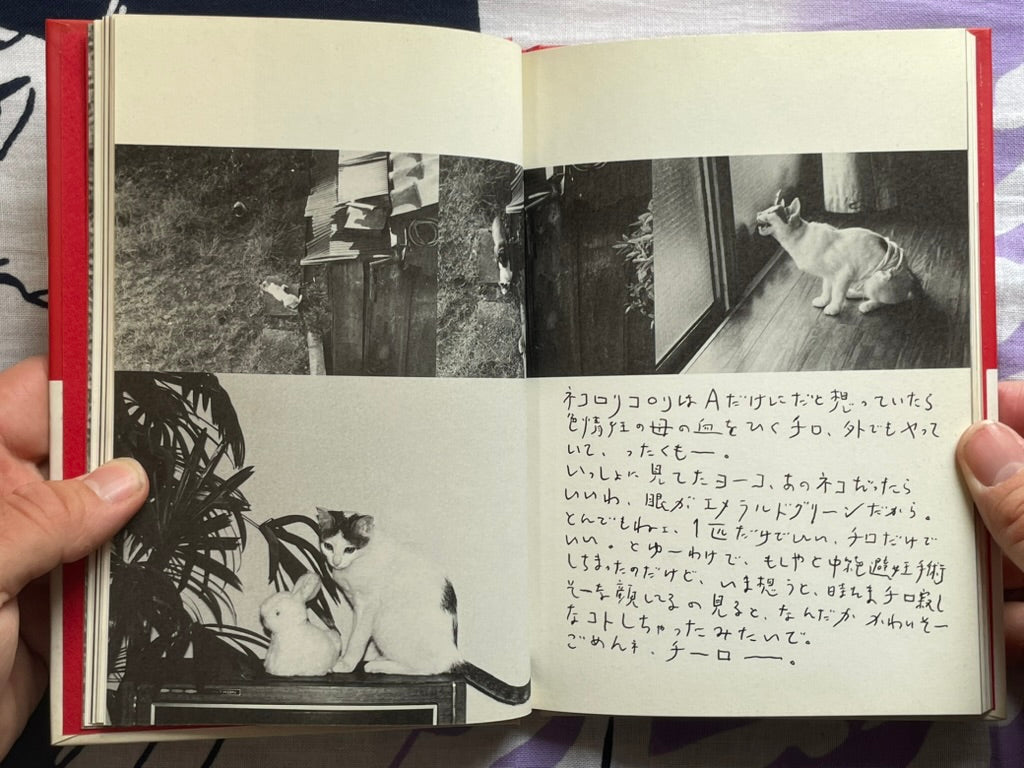 ネコロリコロリはAだけにだと想っていたら
色情狂の母の血をひくチロ、外でもやって
いて、ったくもー。
いっしょに見てたヨーコ、あのネコだったら
いいわ、眼がエメラルドグリーンだから。
とんでもねェ、1匹だけでいい、チロだけで
いい。とゆーわけで、もしやと中絶避妊手術
しちまったのだけど、いま想うと、時たまチロ寂し
そーな顔してるの見ると、なんだか かわいそー
なコトしちゃったみたいで。
ごめんネ、チーロー。